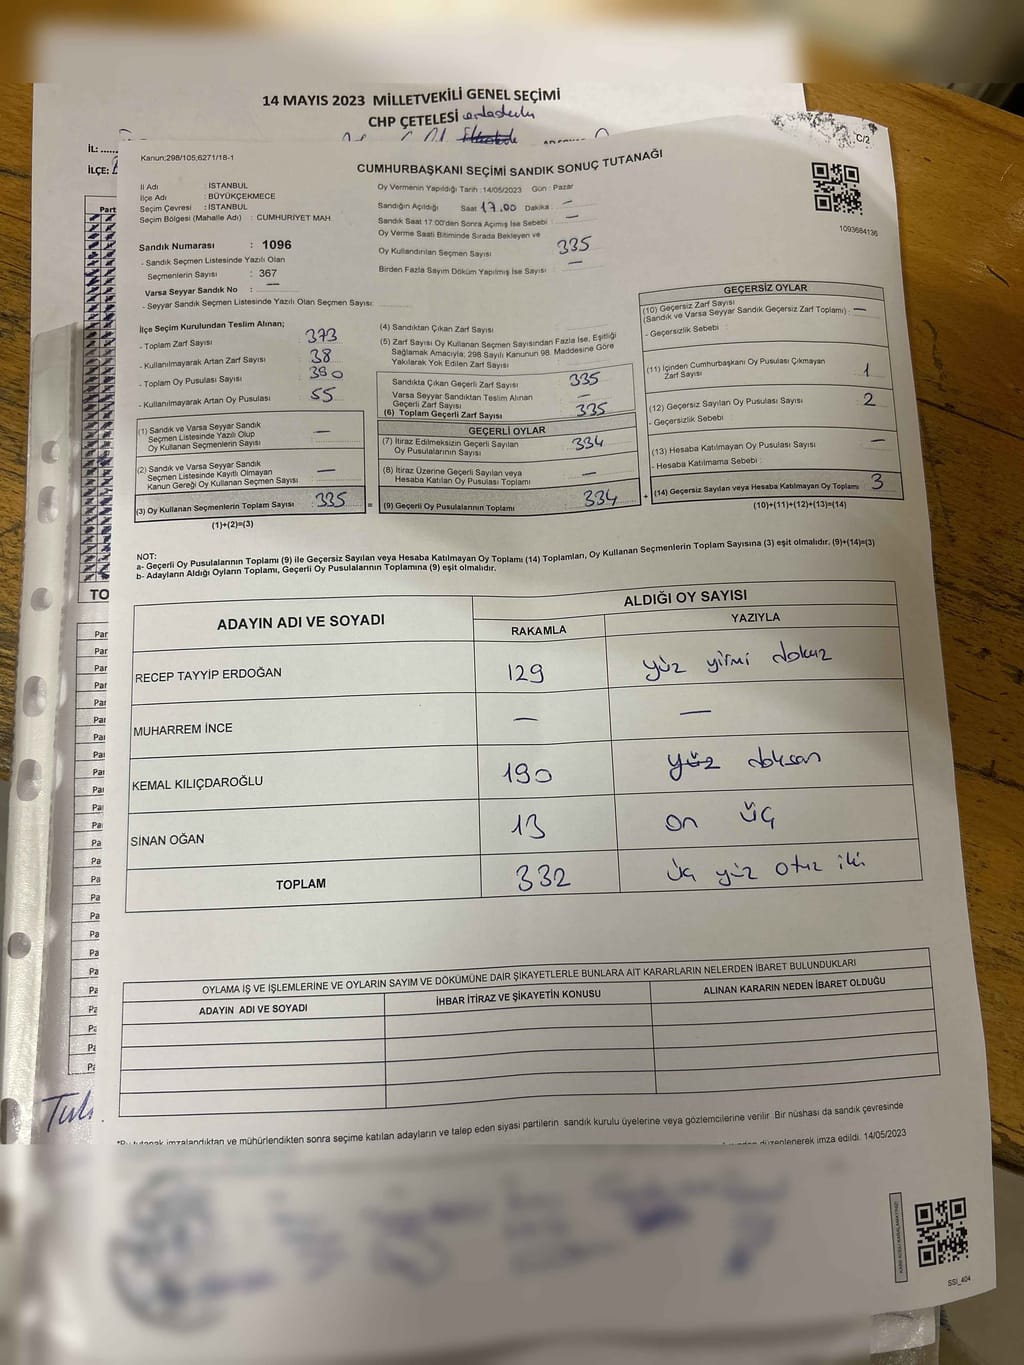 14 MAYIS 2023 MİLLETVEKİLİ GENEL SEÇİMİ
CHP ÇETELESİ
İL:......
İLÇE:
C/2
Kanun;298/105;6271/18-1
CUMHURBAŞKANI SEÇİMİ SANDIK SONUÇ TUTANAĞI
1093684136
İl Adı : İSTANBUL
İlçe Adı : BÜYÜKÇEKMECE
Seçim Çevresi : İSTANBUL
Seçim Bölgesi (Mahalle Adı) : CUMHURİYET MAH.
Sandık Numarası : 1096
- Sandık Seçmen Listesinde Yazılı Olan
Seçmenlerin Sayısı : 367
Varsa Seyyar Sandık No : —
- Seyyar Sandık Seçmen Listesinde Yazılı Olan Seçmen Sayısı:
Oy Vermenin Yapıldığı Tarih : 14/05/2023 Gün : Pazar
Sandığın Açıldığı Saat 17.00 Dakika : —
Sandık Saat 17:00'den Sonra Açımış İse Sebebi : —
Oy Verme Saati Bitiminde Sırada Bekleyen ve
Oy Kullandırılan Seçmen Sayısı 335
Birden Fazla Sayım Döküm Yapılmış İse Sayısı : —
İlçe Seçim Kurulundan Teslim Alınan;
- Toplam Zarf Sayısı 373
- Kullanılmayarak Artan Zarf Sayısı 38
- Toplam Oy Pusulası Sayısı 390
- Kullanılmayarak Artan Oy Pusulası 55
(1) Sandık ve Varsa Seyyar Sandık
Seçmen Listesinde Yazılı Olup
Oy Kullanan Seçmenlerin Sayısı —
(2) Sandık ve Varsa Seyyar Sandık
Seçmen Listesinde Kayıtlı Olmayan
Kanun Gereği Oy Kullanan Seçmen Sayısı —
(3) Oy Kullanan Seçmenlerin Toplam Sayısı 335 =
(1)+(2)=(3)
(4) Sandıktan Çıkan Zarf Sayısı
(5) Zarf Sayısı Oy Kullanan Seçmen Sayısından Fazla İse, Eşitliği
Sağlamak Amacıyla; 298 Sayılı Kanunun 98. Maddesine Göre
Yakılarak Yok Edilen Zarf Sayısı
Sandıkta Çıkan Geçerli Zarf Sayısı 335
Varsa Seyyar Sandıktan Teslim Alınan
Geçerli Zarf Sayısı —
(6) Toplam Geçerli Zarf Sayısı 335
GEÇERLİ OYLAR
(7) İtiraz Edilmeksizin Geçerli Sayılan
Oy Pusulalarının Sayısı 334
(8) İtiraz Üzerine Geçerli Sayılan veya
Hesaba Katılan Oy Pusulası Toplamı —
(9) Geçerli Oy Pusulalarının Toplamı 334 +
GEÇERSİZ OYLAR
(10) Geçersiz Zarf Sayısı
(Sandık ve Varsa Seyyar Sandık Geçersiz Zarf Toplamı) : —
- Geçersizlik Sebebi
(11) İçinden Cumhurbaşkanı Oy Pusulası Çıkmayan
Zarf Sayısı 1
(12) Geçersiz Sayılan Oy Pusulası Sayısı 2
- Geçersizlik Sebebi
(13) Hesaba Katılmayan Oy Pusulası Sayısı —
- Hesaba Katılmama Sebebi :
(14) Geçersiz Sayılan veya Hesaba Katılmayan Oy Toplamı 3
(10)+(11)+(12)+(13)=(14)
NOT:
a- Geçerli Oy Pusulalarının Toplamı (9) ile Geçersiz Sayılan veya Hesaba Katılmayan Oy Toplamı (14) Toplamları, Oy Kullanan Seçmenlerin Toplam Sayısına (3) eşit olmalıdır. (9)+(14)=(3)
b- Adayların Aldığı Oyların Toplamı, Geçerli Oy Pusulalarının Toplamına (9) eşit olmalıdır.
ADAYIN ADI VE SOYADI
ALDIĞI OY SAYISI
RAKAMLA YAZIYLA
RECEP TAYYİP ERDOĞAN 129 yüz yirmi dokuz
MUHARREM İNCE — —
KEMAL KILIÇDAROĞLU 190 yüz doksan
SİNAN OĞAN 13 on üç
TOPLAM 332 üç yüz otuz iki
OYLAMA İŞ VE İŞLEMLERİNE VE OYLARIN SAYIM VE DÖKÜMÜNE DAİR ŞİKAYETLERLE BUNLARA AİT KARARLARIN NELERDEN İBARET BULUNDUKLARI
ADAYIN ADI VE SOYADI İHBAR İTİRAZ VE ŞİKAYETİN KONUSU ALINAN KARARIN NEDEN İBARET OLDUĞU
tutanak imzalandıktan ve mühürlendikten sonra seçime katılan adayların ve talep eden siyasi partilerin sandık kurulu üyelerine veya gözlemcilerine verilir Bir nüshası da sandık çevresinde
düzenlenerek imza edildi. 14/05/2023
SSI_404